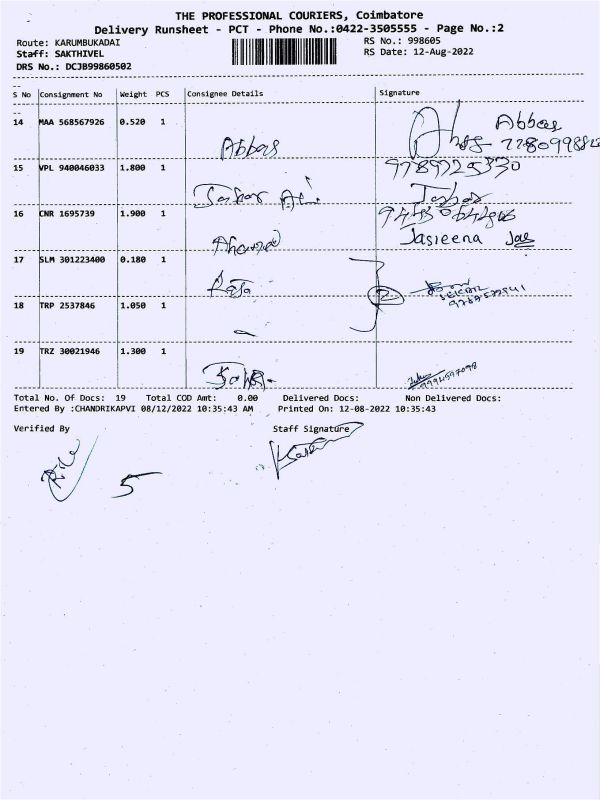 THE PROFESSIONAL COURIERS, Coimbatore
Delivery Runsheet - PCT - Phone No.:0422-3505555 - Page No.:2
Route: KARUMBUKADAI
RS No.: 998605
Staff: SAKTHIVEL
RS Date: 12-Aug-2022
DRS No.: DCJB99860502
S No Consignment No Weight PCS Consignee Details Signature
14 MAA 568567926 0.520 1
Abbas
Abbas
15 VPL 940046033 1.800 1
9789725330
16 CNR 1695739 1.900 1
Jasieena
17 SLM 301223400 0.180 1
Raja
2
18 TRP 2537846 1.050 1
19 TRZ 30021946 1.300 1
Total No. Of Docs: 19 Total COD Amt: 0.00 Delivered Docs: Non Delivered Docs:
Entered By :CHANDRIKAPVI 08/12/2022 10:35:43 AM Printed On: 12-08-2022 10:35:43
Verified By Staff Signature
5